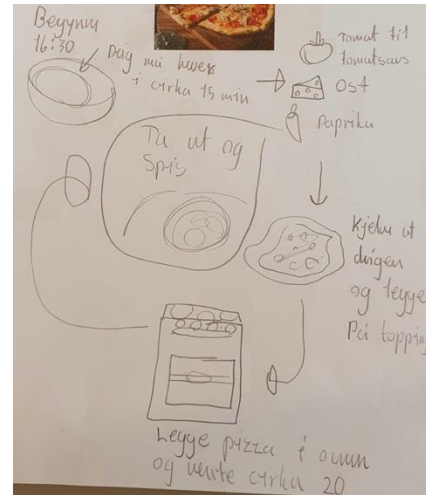 Begynn
16:30
Deig må heves
i cirka 15 min
Tomat til
tomatsaus
Ost
Paprika
Ta ut og
Spis
Kjevle ut
deigen
og legge
På topping
Legge pizza i ovnen
og vente cirka 20